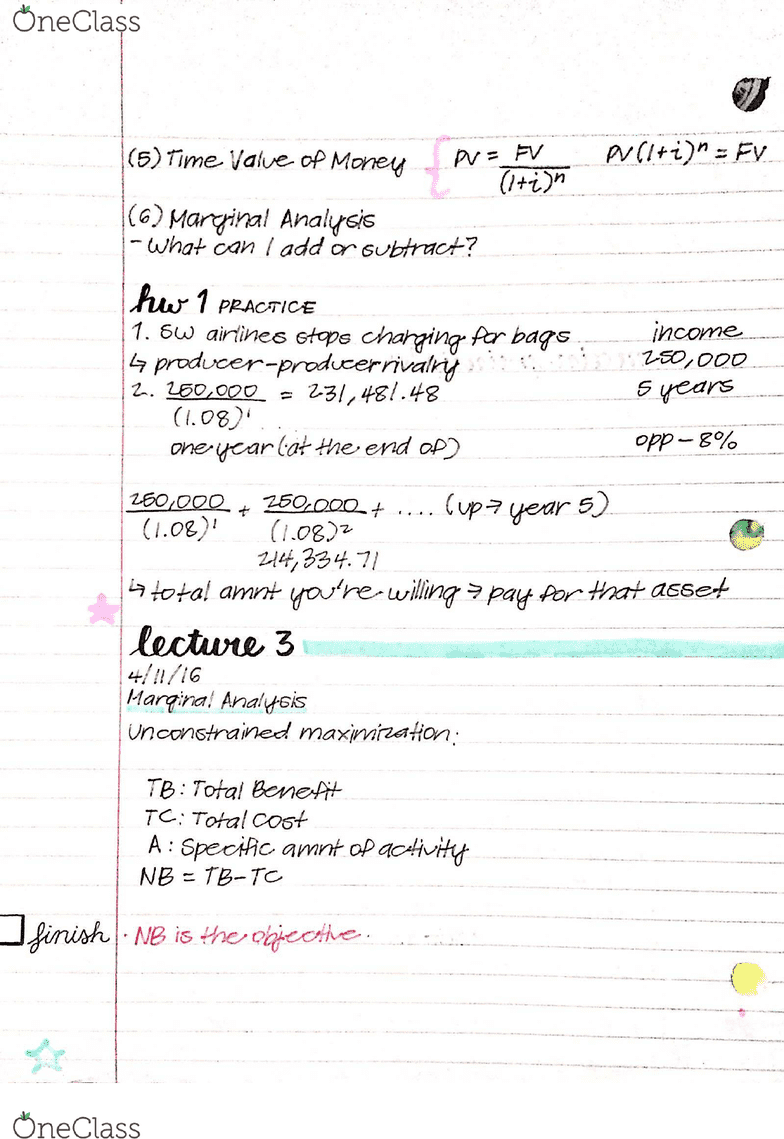 OneClass
(5) Time Value of Money PV = FV/(1+i)^n PV(1+i)^n = FV
(6) Marginal Analysis
- What can I add or subtract?
hw 1 PRACTICE
1. SW airlines stops charging for bags. income
↳ producer-producer rivalry 250,000
2. 250,000/(1.08)^1 = 231,481.48 5 years
one year (at the end of) opp - 8%
250,000/(1.08)^1 + 250,000/(1.08)^2 + .... (up → year 5)
214,334.71
↳ total amnt you're willing → pay for that asset
lecture 3
4/11/16
Marginal Analysis
Unconstrained maximization:
TB: Total Benefit
TC: Total Cost
A: Specific amnt of activity
NB = TB-TC
finish · NB is the objective.
OneClass